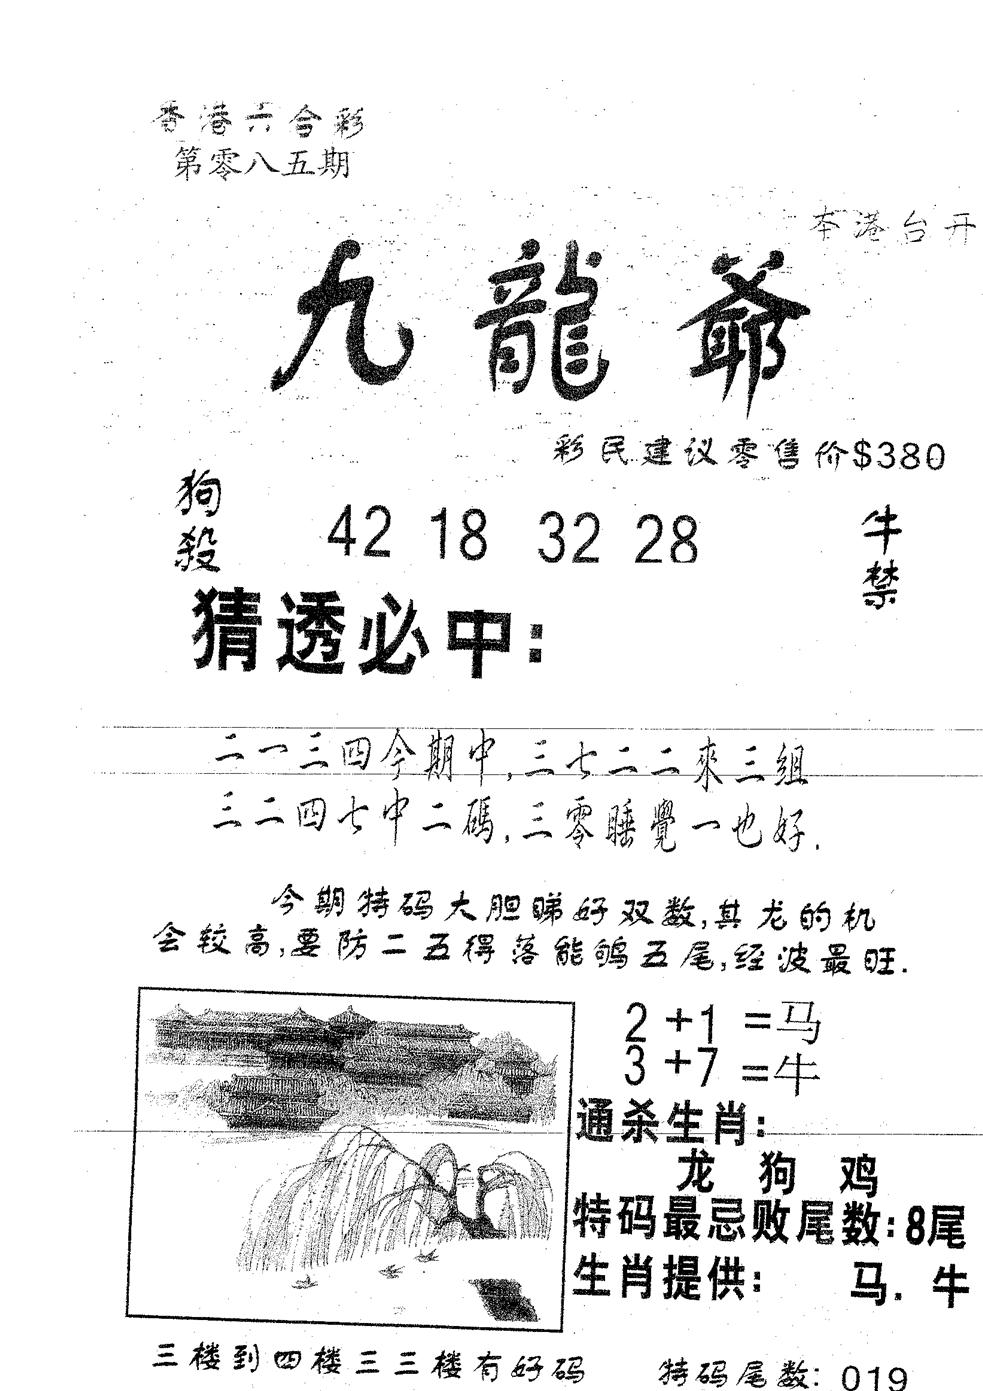 香港六合彩
第零八五期
本港台开
九龍爺
彩民建议零售价$380
狗殺
42 18 32 28
牛禁
猜透必中:
二一三四今期中,三七二二來三組
三二四七中二碼,三零睡覺一也好.
今期特码大胆睇好双数,其龙的机
会较高,要防二五得落能鸣五尾,经波最旺.
2+1=马
3+7=牛
通杀生肖:
龙 狗 鸡
特码最忌败尾数:8尾
生肖提供: 马.牛
三楼到四楼三三楼有好码 特码尾数:019